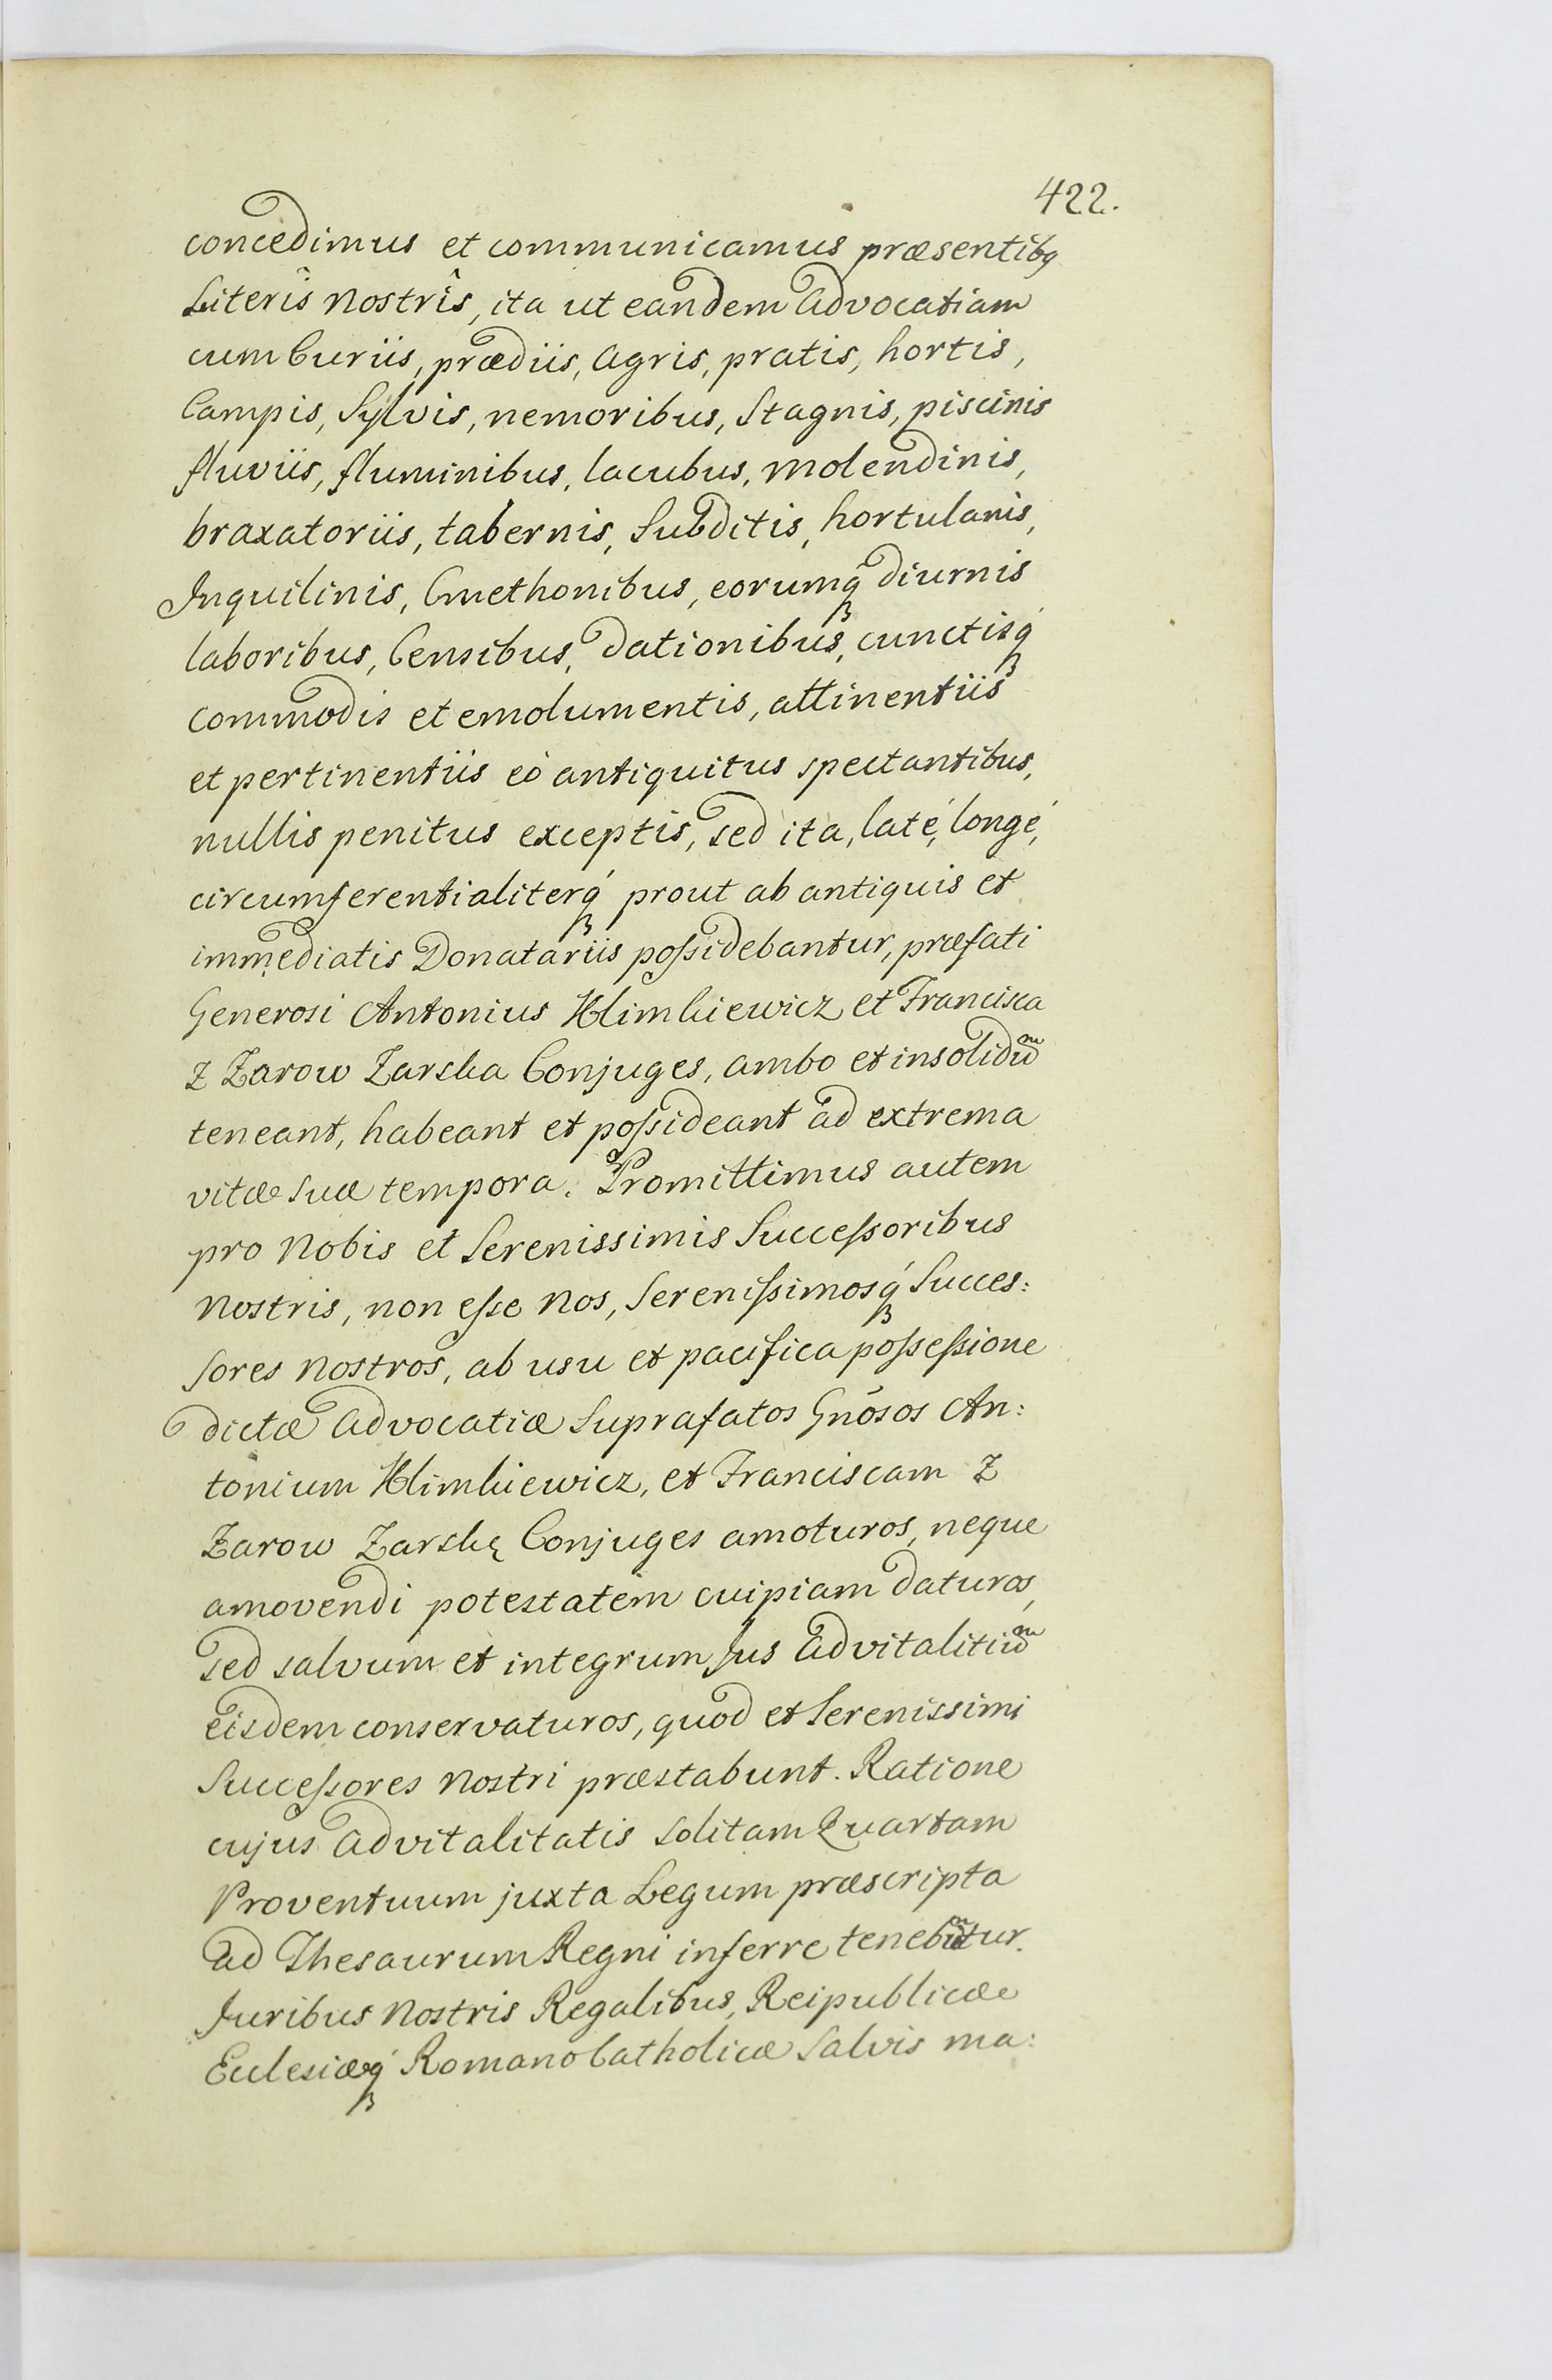 422.
concedimus et communicamus præsentibq
Literîs Nostrîs, ita ut eandem Advocatiam
cum Curiis, prædiis, Agris, pratis, hortis,
Campis, Sylvis, nemoribus, Stagnis, piscinis
fluviis, fluminibus, lacubus, molendinis,
braxatoriis, tabernis, Subditis, hortulanis,
Inquilinis, Cmethonibus, eorumq́ꝫ diurnis
laboribus, Censibus, Dationibus, cunctisq́ꝫ
commodis et emolumentis, attinentiis
et pertinentiis eò antiquitus spectantibus,
nullis penitus exceptis, sed ita, laté, longé,
circumferentialiterq́ꝫ prout ab antiquis et
immediatis Donatariis poſsidebantur, præfati
Generosi Antonius Klimkiewicz et Francisca
z Zarow Zarska Conjuges, ambo et insolidūm
teneant, habeant et poſsideant ad extrema
vitæ suæ tempora. Promittimus autem
pro Nobis et Serenissimis Succeſsoribus
Nostris, non eſse Nos, Sereniſsimosq́ꝫ Succes:
sores Nostros, ab usu et pacifica poſseſsione
dictæ Advocatiæ Suprafatos Gnōsos An:
tonium Klimkiewicz, et Franciscam Z
Zarow Zarskę Conjuges amoturos, neque
amovendi potestatem cuipiam daturos,
sed salvum et integrum Jus Advitalitiūm
eisdem conservaturos, quod et Serenissimi
Succeſsores Nostri præstabunt. Ratione
cujus Advitalitatis solitam Quartam
Proventuum juxta Legum præscripta
ad Thesaurum Regni inferre tenebūtur.
Juribus Nostris Regalibus, Reipublicæ
Eclesiæq́ꝫ Romano Catholicæ Salvis ma: